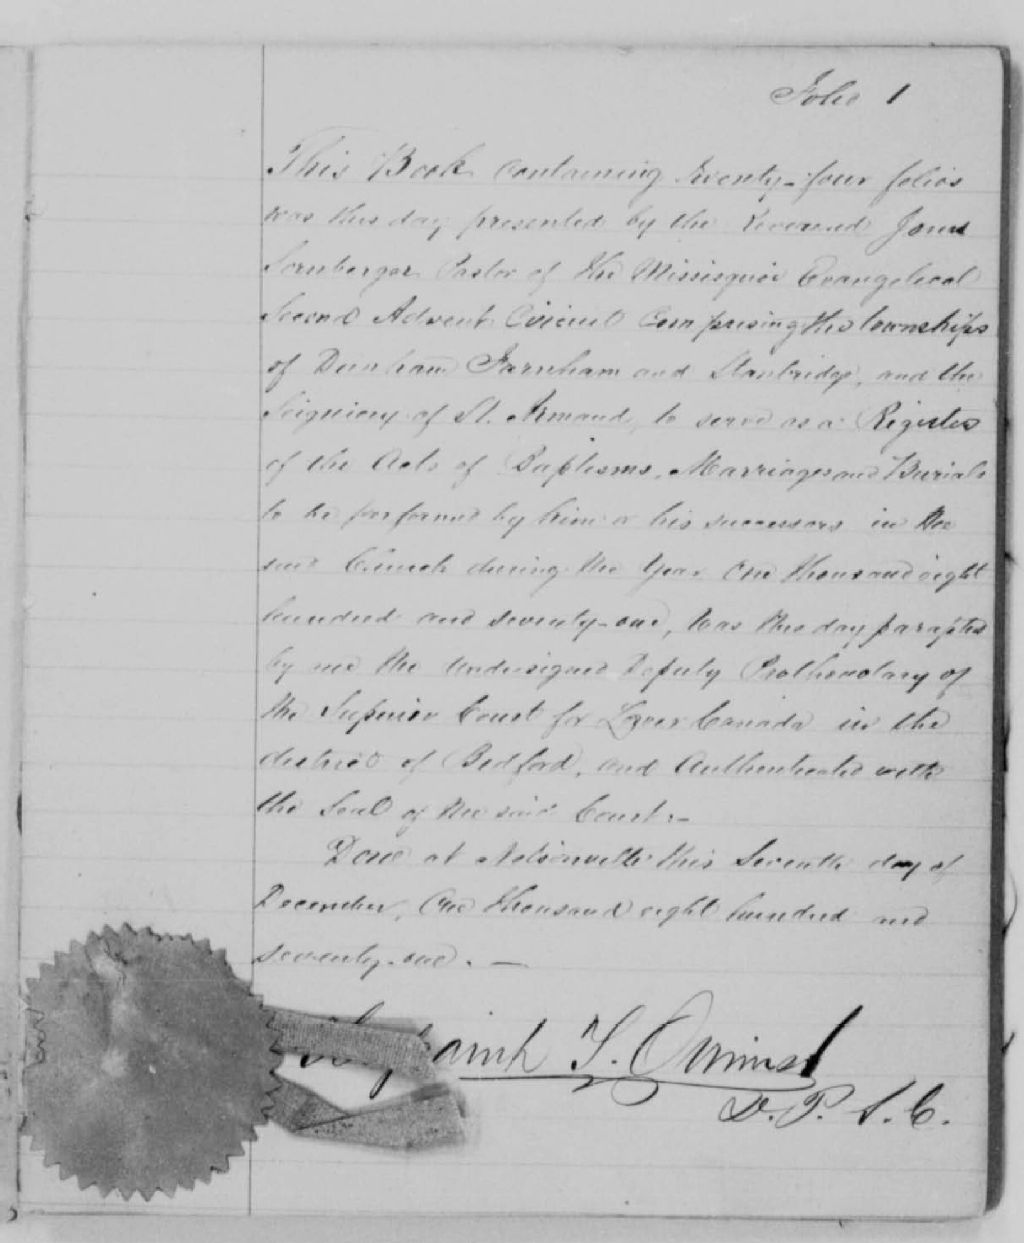 Folio 1
This Book containing twenty-four folios
was this day presented by the Reverend
Sornberger Pastor of the Missisquoi Evangelical
Second Advent Circuit Comprising the townships
of Dunham Farnham and Stanbridge, and the
Seigniory of St. Armand, to serve as a Register
of the Acts of Baptisms, Marriages and Burials
to be performed by him or his successors in the
said Church during the Year One thousand eight
hundred and seventy-one, was this day paraphed
by me the Undersigned Deputy Prothonotary of
the Superior Court for Lower Canada in the
district of Bedford, and Authenticated with
the Seal of the said Court.-
Done at Nelsonville this Seventh day of
December, One thousand eight hundred and
seventy-one. —
D. P. S. C.